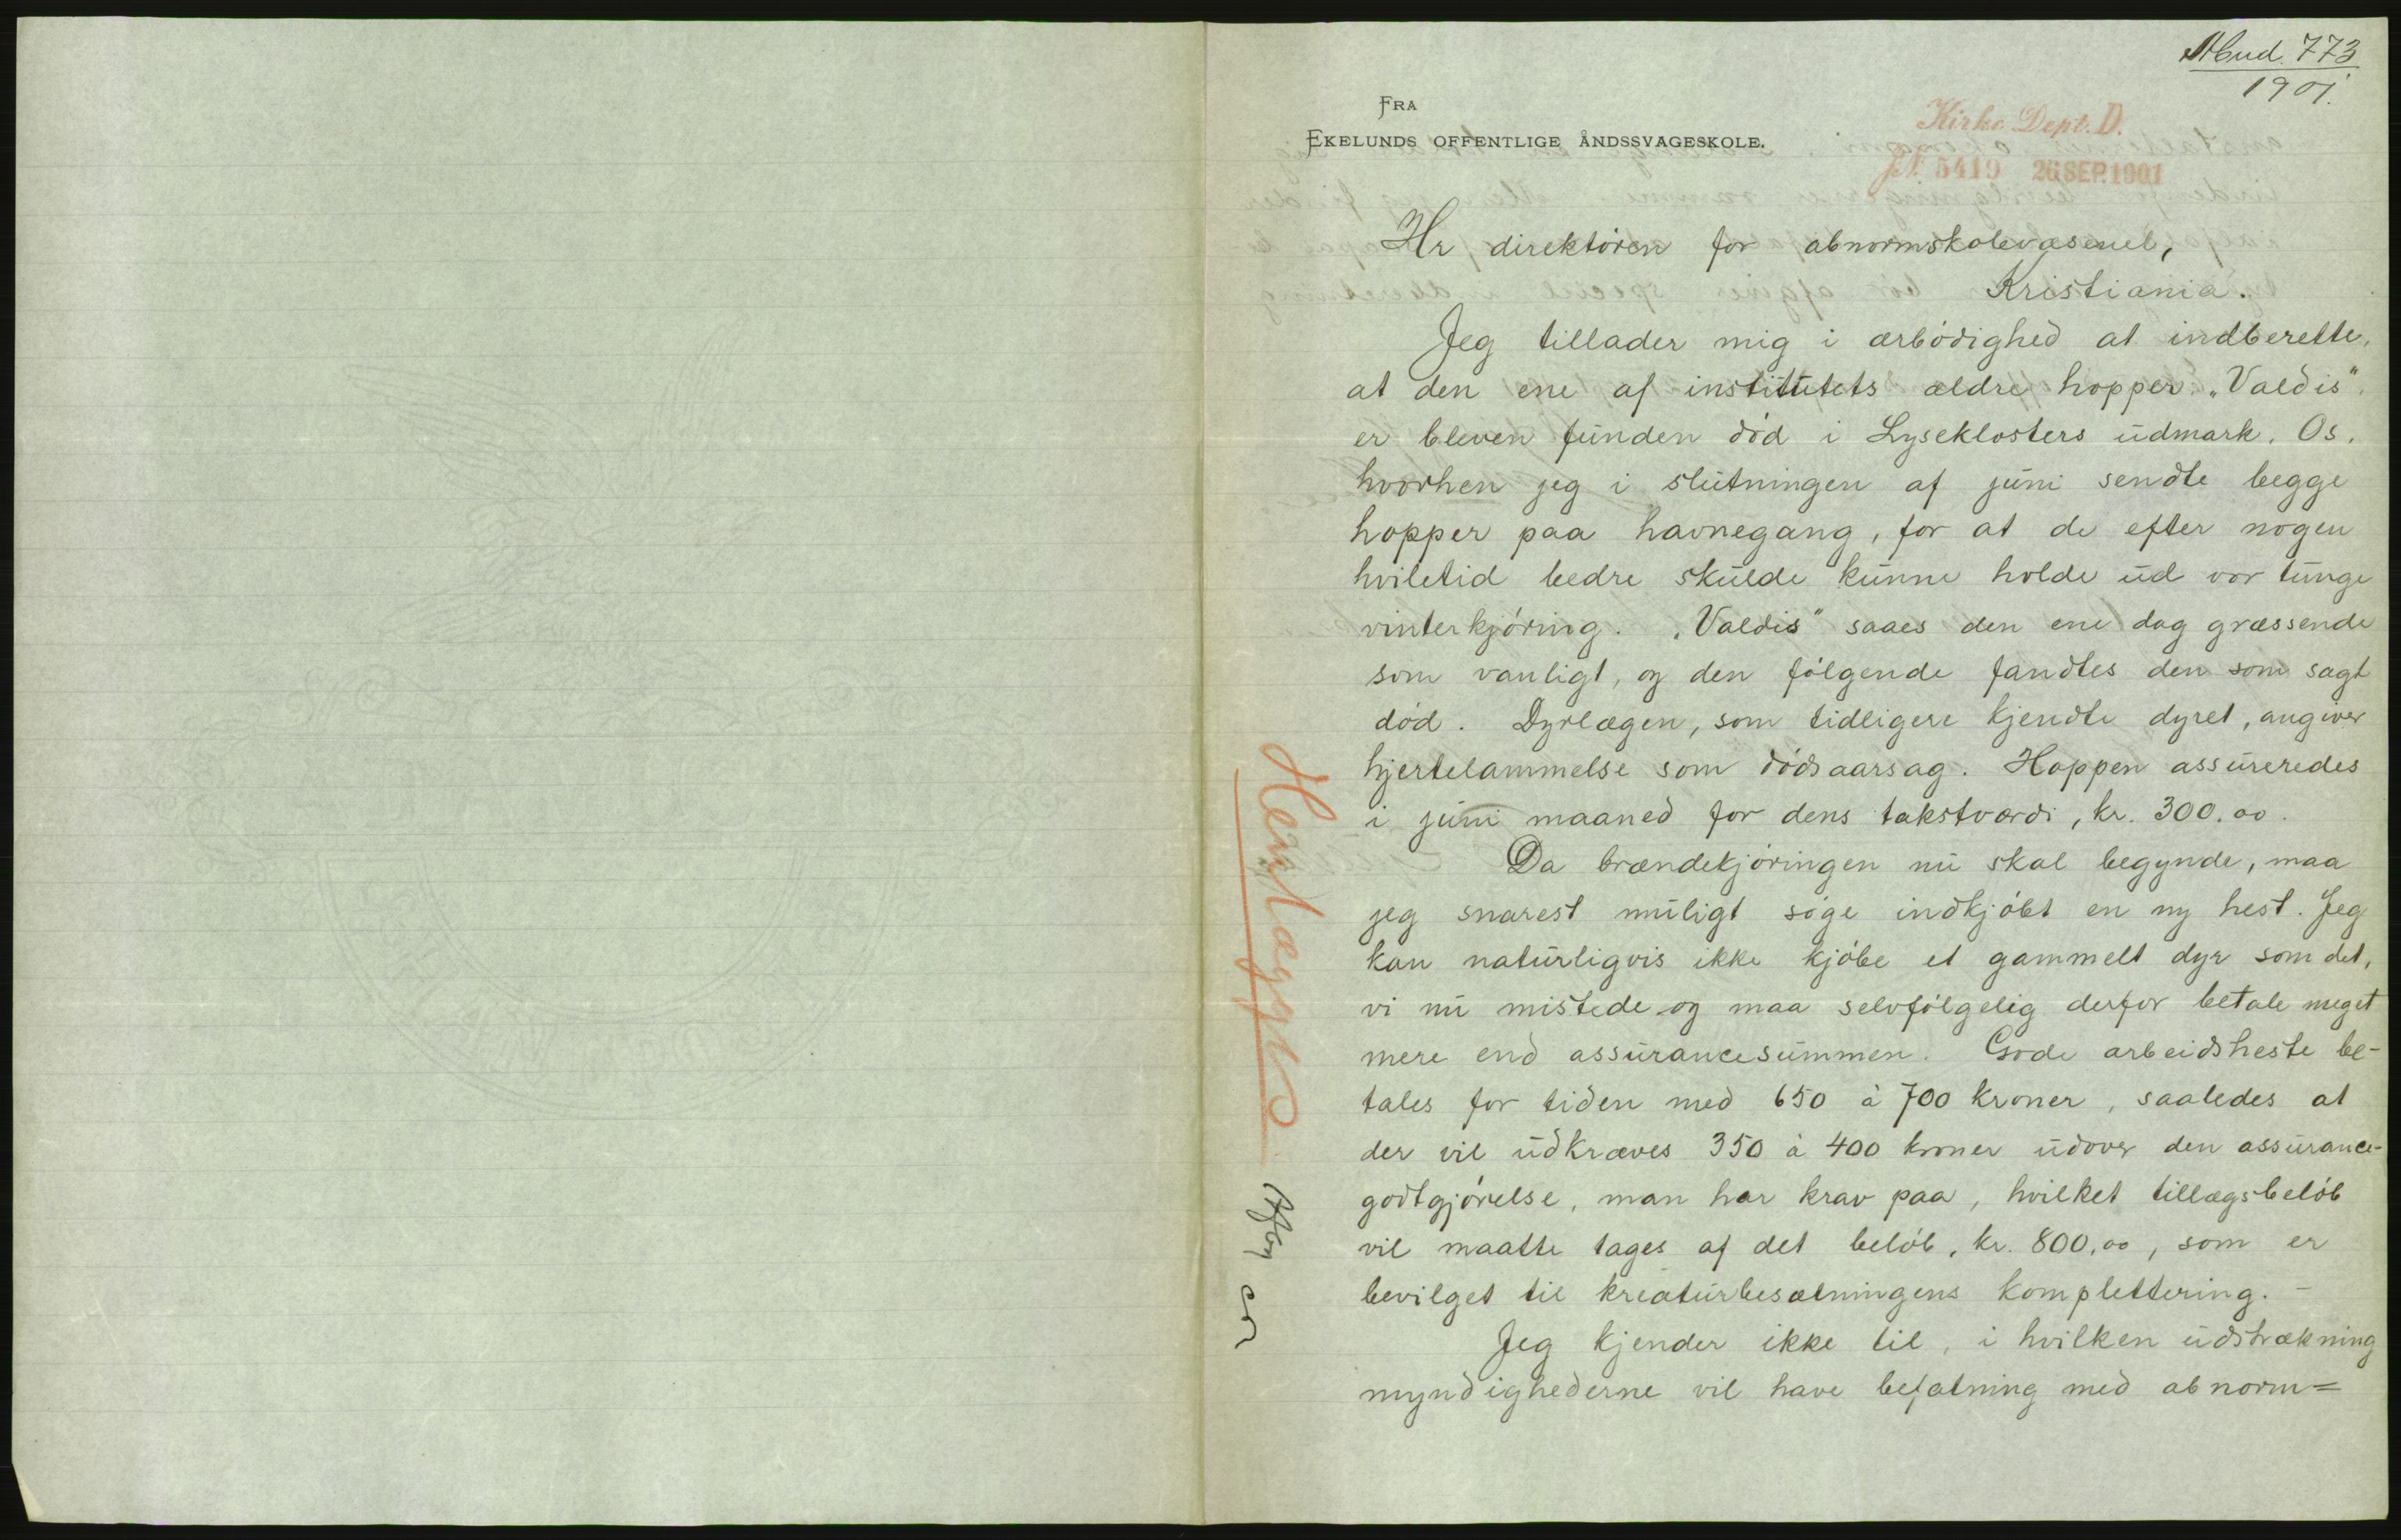 Abud. 773
1901.
FRA
EKELUNDS OFFENTLIGE ÅNDSSVAGESKOLE.
Kirke Dept. D.
JN. 5419 26 SEP. 1901
Hr direktören for abnormskolevæsenet,
Kristiania.
Jeg tillader mig i ærbödighed at indberette,
at den ene af institutets ældre hopper „Valdis",
er bleven funden död i Lyseklosters udmark, Os,
hvorhen jeg i slutningen af juni sendte begge
hopper paa havnegang, for at de efter nogen
hviletid bedre skulde kunne holde ud vor tunge
vinterkjöring. „Valdis" saaes den ene dag græssende
som vanligt, og den fölgende fandtes den som sagt
död. Dyrlægen, som tidligere kjendte dyret, angiver
hjertelammelse som dödsaarsag. Hoppen assureredes
i juni maaned for dens takstværdi, kr. 300.00.
Da brændekjöringen nu skal begynde, maa
jeg snarest muligt söge indkjöbt en ny hest. Jeg
kan naturligvis ikke kjöbe et gammelt dyr som det,
vi nu mistede og maa selvfölgelig derfor betale meget
mere end assurancesummen. Gode arbeidsheste be-
tales for tiden med 650 à 700 kroner, saaledes at
der vil udkræves 350 à 400 kroner udover den assurance-
godtgjörelse, man har krav paa, hvilket tillægsbelöb
vil maatte tages af det belöb, kr. 800,00, som er
bevilget til kreaturbesætningens komplettering. -
Jeg kjender ikke til, i hvilken udstrækning
myndighederne vil have befatning med abnorm=
Henlægges